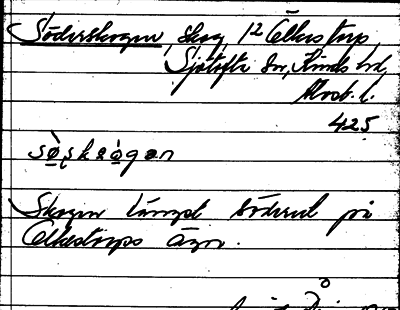 Söderskogen, skog, 12 Ölkestorp,
Sjötofta sn, Kinds hd,
Älvsb. l.
425
sö̀ṣkò̤gan
Skogen längst söderut på
Ölkestorps ägor.